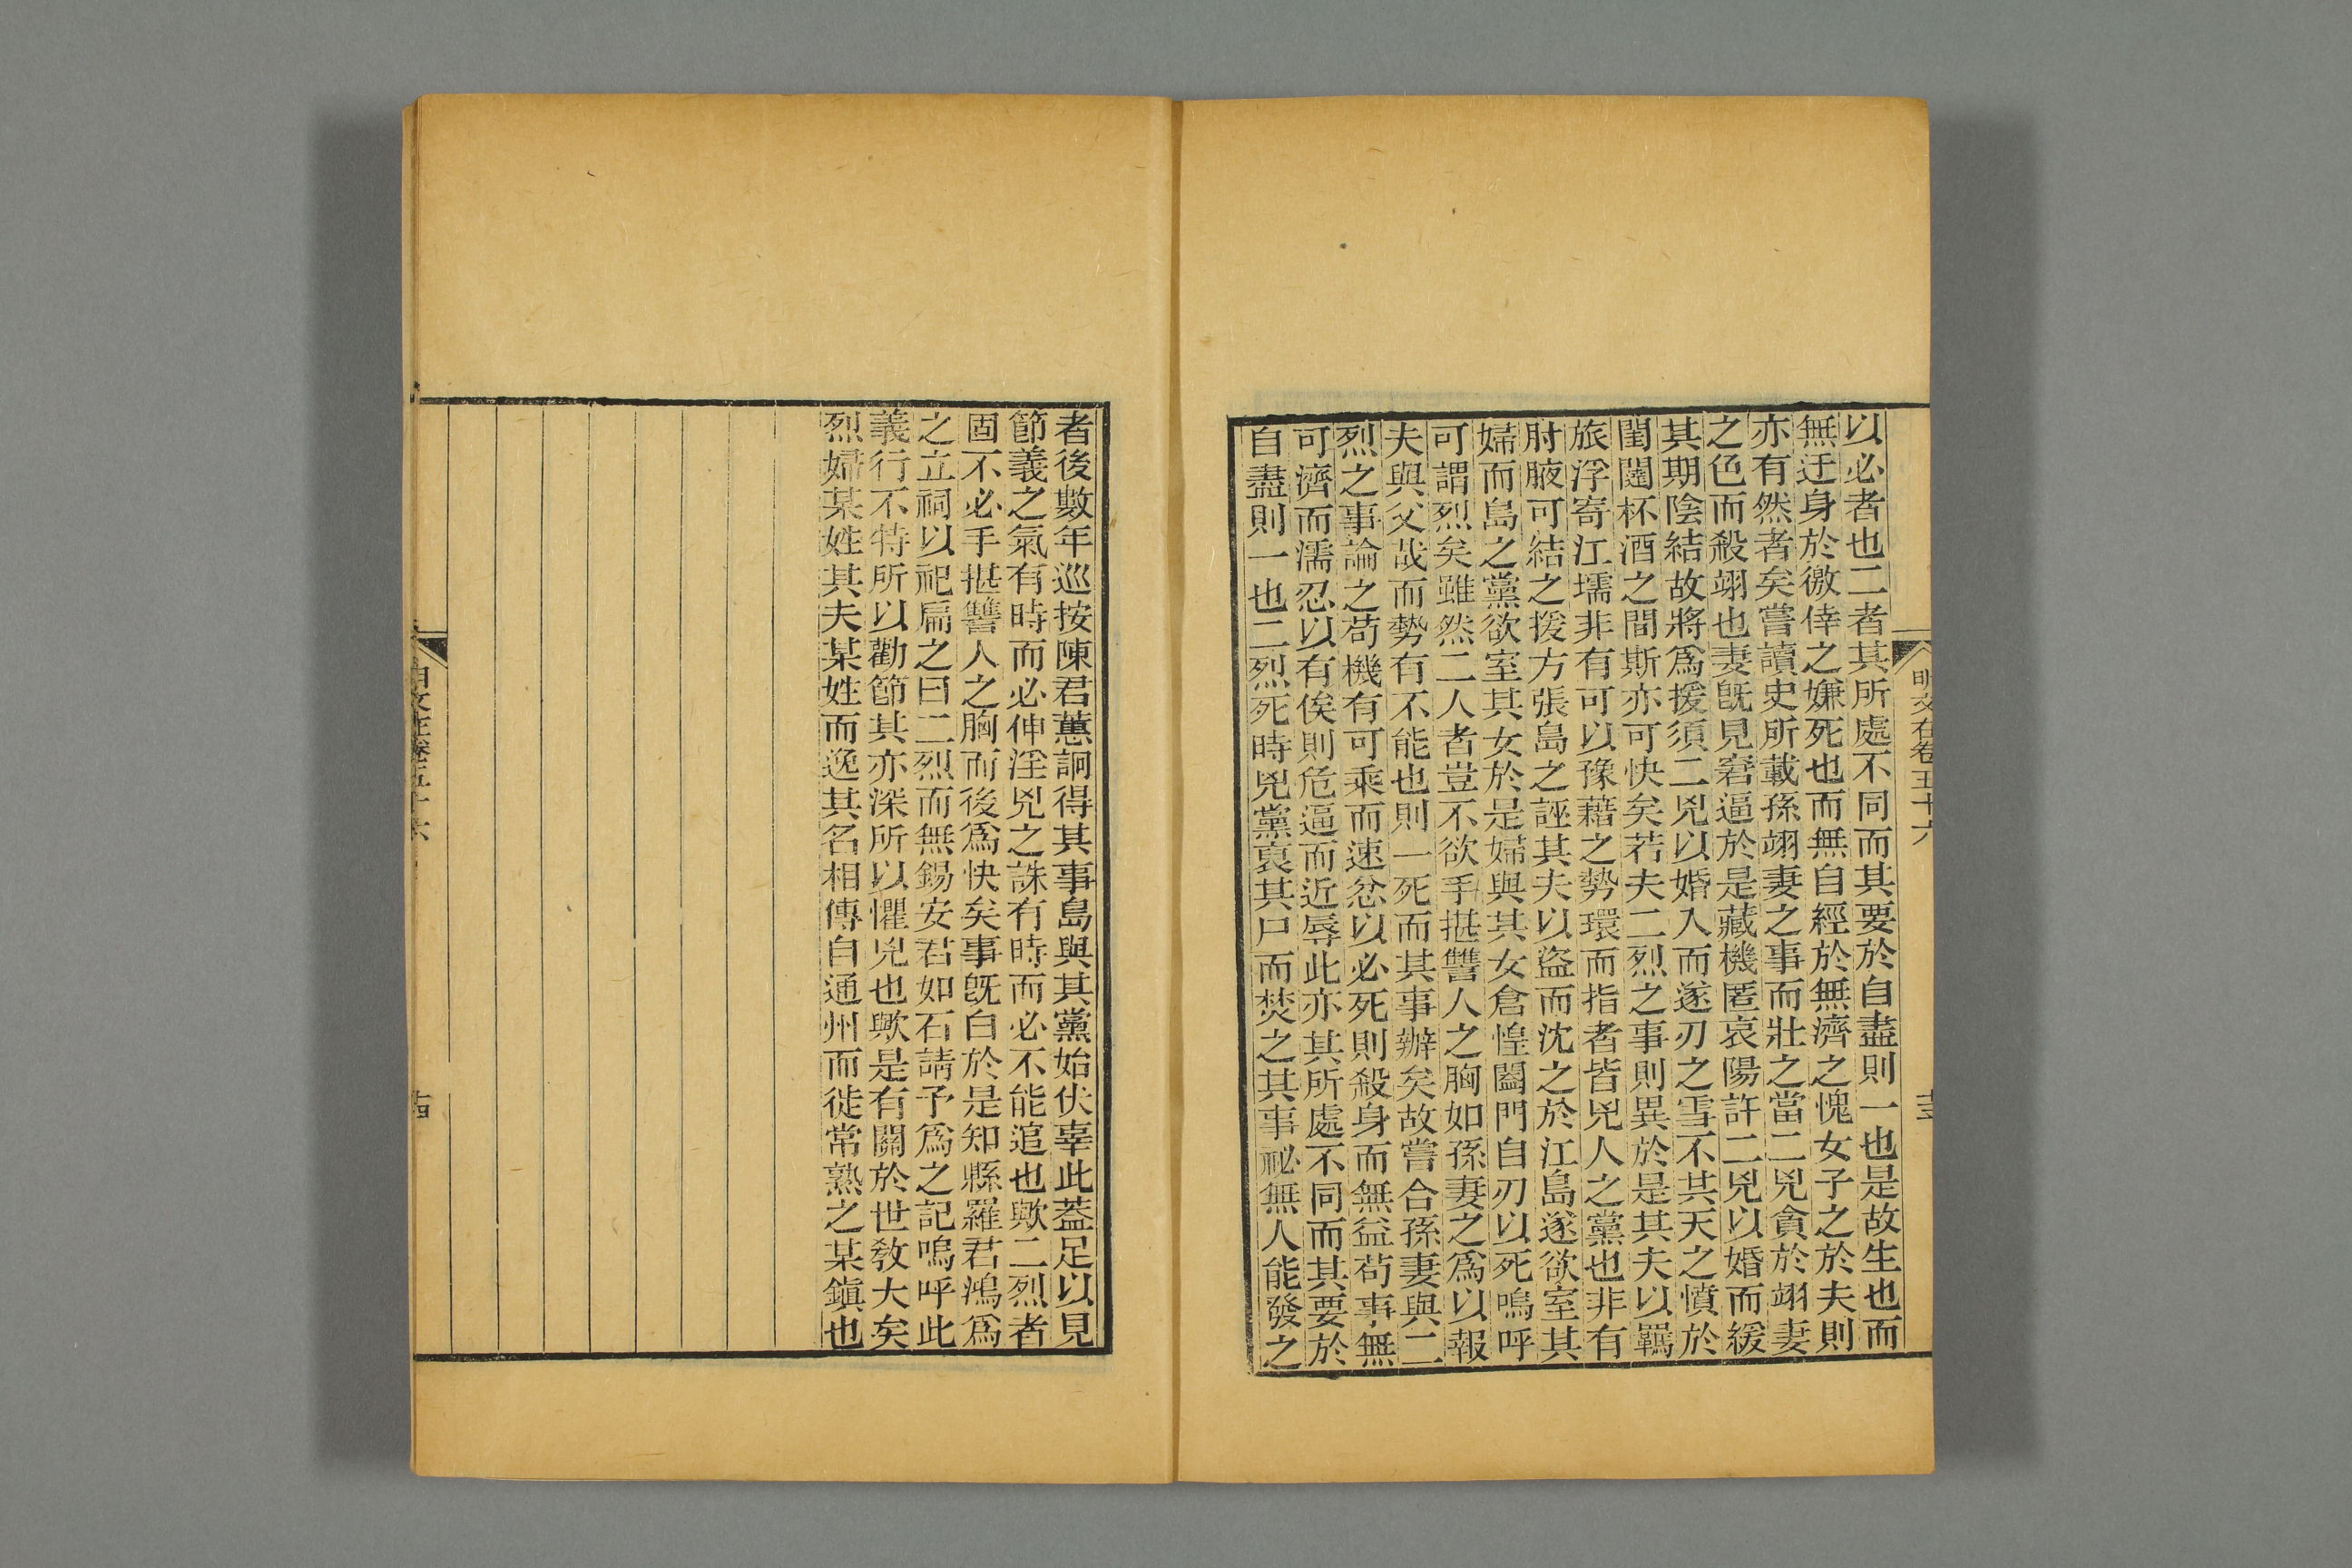 明文在卷五十六
十三
以必者也二者其所處不同而其要於自盡則一也是故生也而
無迂身於徼倖之嫌死也而無自經於無濟之愧女子之於夫則
亦有然者矣嘗讀史所載孫翊妻之事而壯之當二兇貪於翊妻
之色而殺翊也妻旣見窘逼於是藏機匿哀陽許二兇以婚而緩
其期陰結故將爲援須二兇以婚入而遂刃之雪不共天之憤於
閨闥杯酒之間斯亦可快矣若夫二烈之事則異於是其夫以羈
旅浮寄江壖非有可以豫藉之勢環而指者皆兇人之黨也非有
肘腋可結之援方張島之誣其夫以盜而沈之於江島遂欲室其
婦而島之黨欲室其女於是婦與其女倉惶闔門自刃以死嗚呼
可謂烈矣雖然二人者豈不欲手揕讐人之胸如孫妻之爲以報
夫與父哉而勢有不能也則一死而其事辦矣故嘗合孫妻與二
烈之事論之苟機有可乘而速忿以必死則殺身而無益苟事無
可濟而濡忍以有俟則危逼而近辱此亦其所處不同而其要於
自盡則一也二烈死時兇黨裒其尸而焚之其事祕無人能發之
者後數年巡按陳君蕙詗得其事島與其黨始伏辜此葢足以見
節義之氣有時而必伸淫兇之誅有時而必不能逭也歟二烈者
固不必手揕讐人之胸而後爲快矣事旣白於是知縣羅君鴻爲
之立祠以祀扁之曰二烈而無錫安君如石請予爲之記嗚呼此
義行不特所以勸節其亦深所以懼兇也歟是有關於世敎大矣
烈婦某姓其夫某姓而逸其名相傳自通州而徙常熟之某鎭也
明文在卷五十六
十四